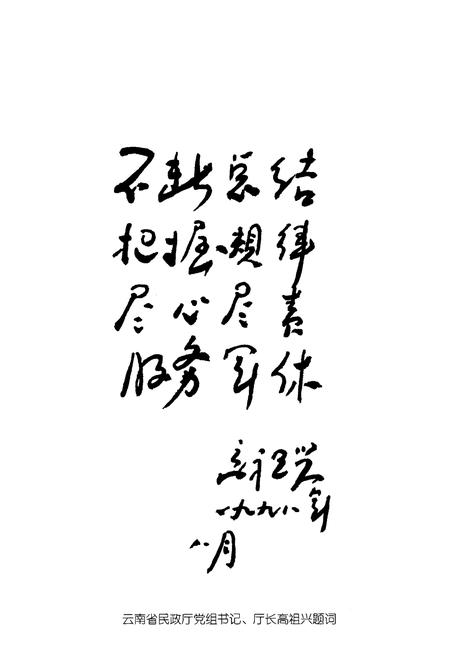 不断总结
把握规律
尽心尽责
服务军休
高祖兴
一九九八年
八月
云南省民政厅党组书记、厅长高祖兴题词